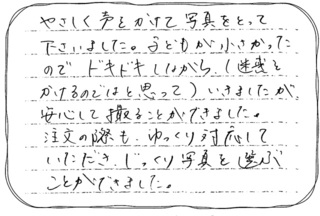 やさしく声をかけて写真をとって
下さいました。子どもが小さかった
ので ドキドキしながら、(迷惑を
かけるのではと思って)いきましたが、
安心して撮ることができました。
注文の際も、ゆっくり対応して
いただき、じっくり写真を選ぶ
ことができました。